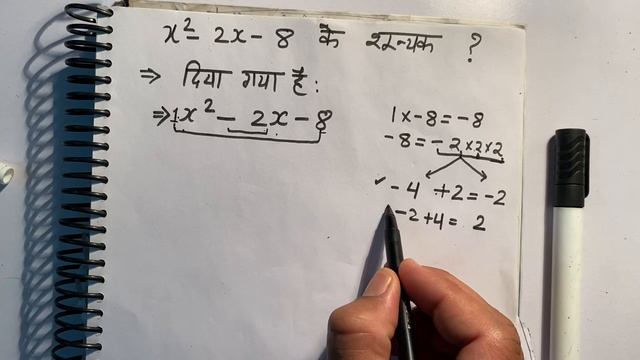 x² - 2x - 8 के शून्यक ?
⇒ दिया गया है :
⇒ 1x² - 2x - 8
1 x -8 = -8
-8 = -2 x 2 x 2
✓ -4 +2 = -2
-2 + 4 = 2